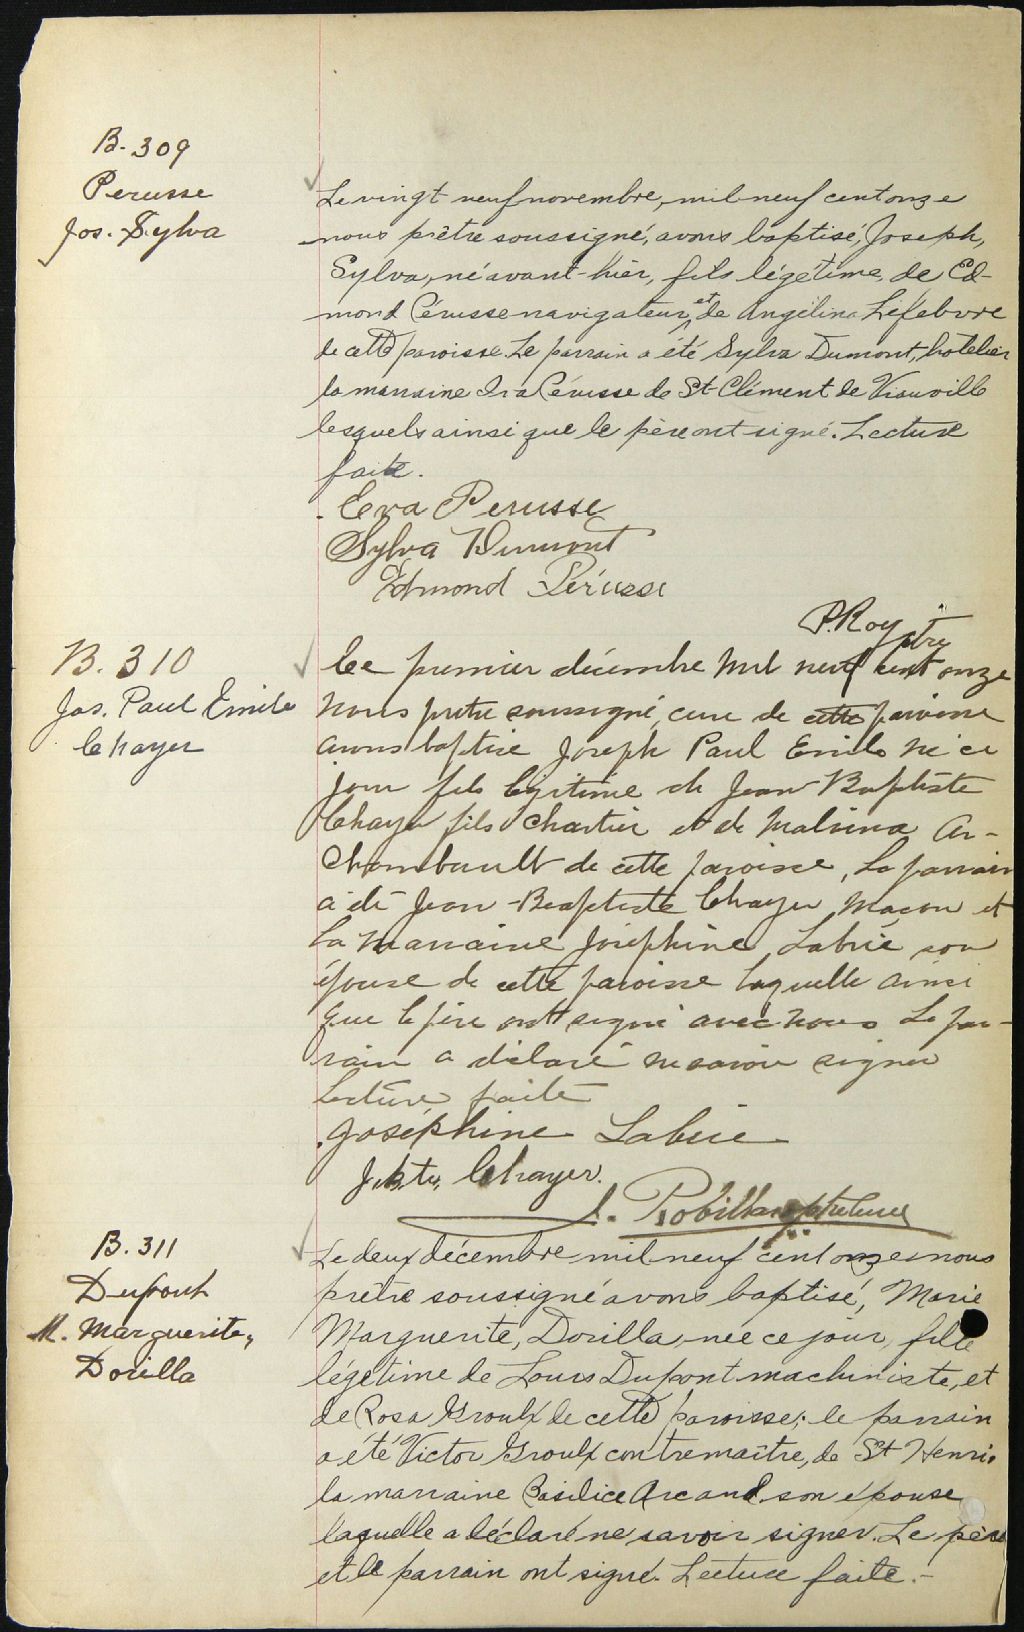 B. 309
Perusse
Jos. Sylva
Le vingt neuf novembre, mil neuf cent onze
nous prêtre soussigné, avons baptisé, Joseph,
Sylva, né avant-hier, fils légetime, de Ed-
mond Pérusse navigateur, et de Angélina Lefebvre
de cette paroisse. Le parrain a été Sylva Dumont, hotelier
la marraine Eva Pérusse de St-Clément de Viauville
lesquels ainsi que le père ont signé. Lecture
faite.
Eva Perusse
Sylva Dumont
Edmond Pérusse
P. Roy ptre
B. 310
Jos. Paul Emile
Chayer
Le premier décembre mil neuf cent onze
Nous pretre soussigné, cure de cette paroisse
avons baptise Joseph Paul Emile né ce
jour fils legitime de Jean Baptiste
Chayer fils chartier et de Malvina Ar-
Chambault de cette paroisse, Le parrain
a été Jean-Baptiste Chayer maçon et
la marraine Joséphine Labrie son
épouse de cette paroisse laquelle ainsi
que le père ont signé avec nous Le par-
rain a déclaré ne savoir signer
Lecture faite
Joséphine Labrie
J. Bte. Chayer.
Robillard ptre curé
B. 311
Dupont
M. Marguerite,
Dorilla
Le deux décembre mil neuf cent onze nous
prêtre soussigné avons baptisé, Marie
Marguerite, Dorilla, née ce jour, fille
légetime de Louis Dupont machiniste, et
de Rosa Groulx de cette paroisse; le parrain
a été Victor Groulx contremaître, de St Henri.
la marraine Basilice Arcand son épouse
laquelle a déclaré ne savoir signer. Le père
et le parrain ont signé. Lecture faite.-